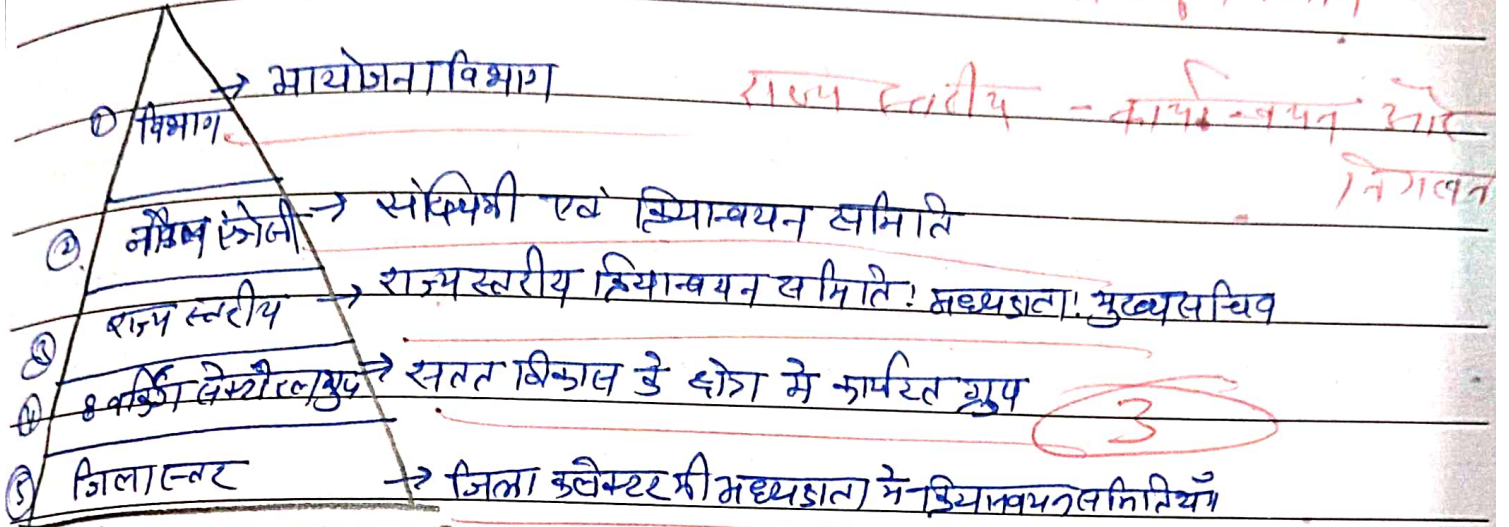 → आयोजना विभाग
राज्य स्तरीय - कार्यान्वयन और
① विभाग
② नोडल एजेंसी → सांख्यिकी एवं क्रियान्वयन समिति
③ राज्य स्तरीय → राज्य स्तरीय क्रियान्वयन समिति: अध्यक्षता: मुख्य सचिव
④ 8 वर्किंग सेक्टोरल ग्रुप → सतत विकास के क्षेत्र में कार्यरत ग्रुप
3
⑤ जिला स्तर → जिला कलेक्टर की अध्यक्षता में क्रियान्वयन समितियाँ